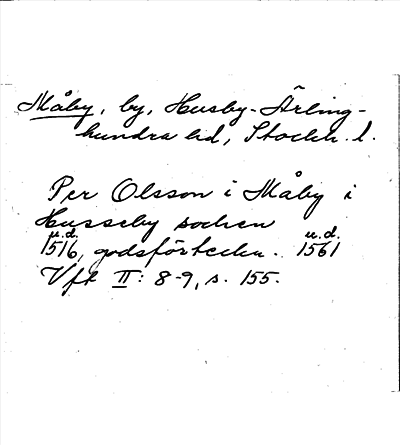 Måby, by, Husby-Ärling-
hundra hd, Stockh. l.
Per Olsson i Måby i
Husseby socken
u.d. u.d.
1516, godsförteckn. 1561
Vfk II: 8-9, s. 155.